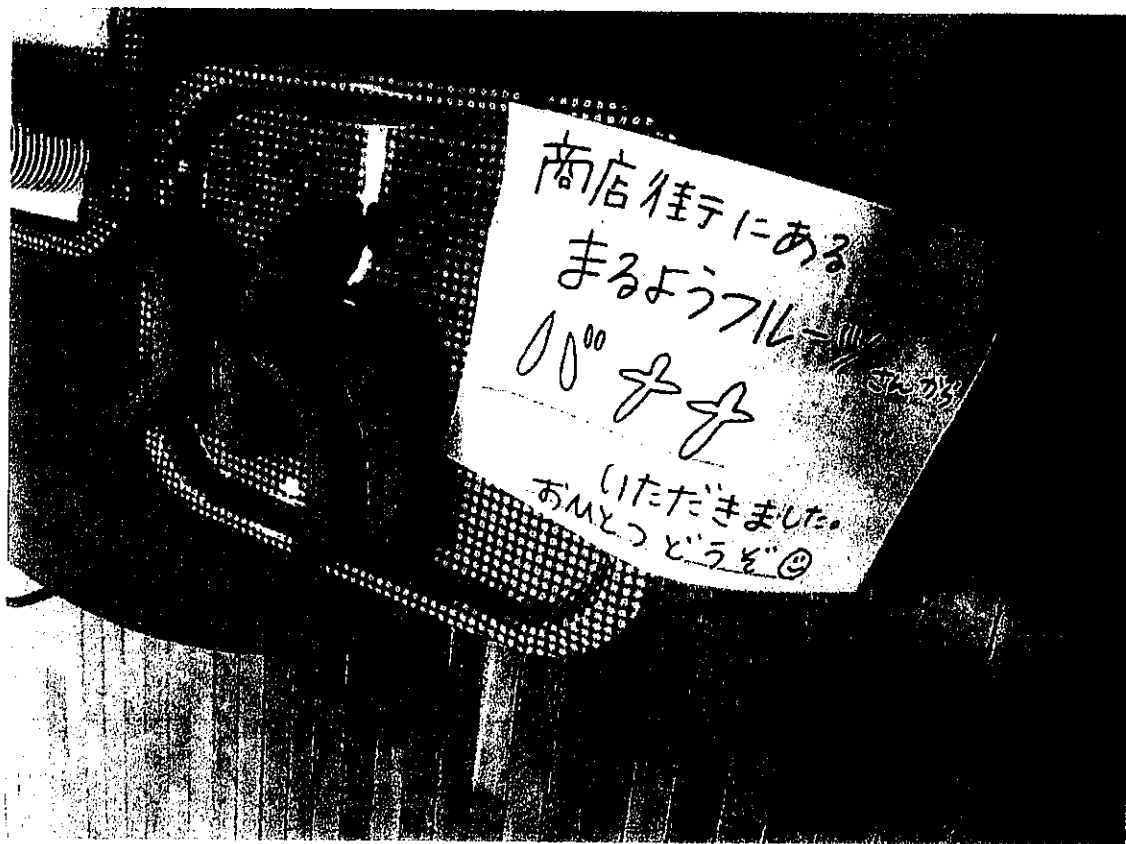 商店街にある
まるようフルーツ
さんから
バナナ
いただきました。
おひとつどうぞ☺